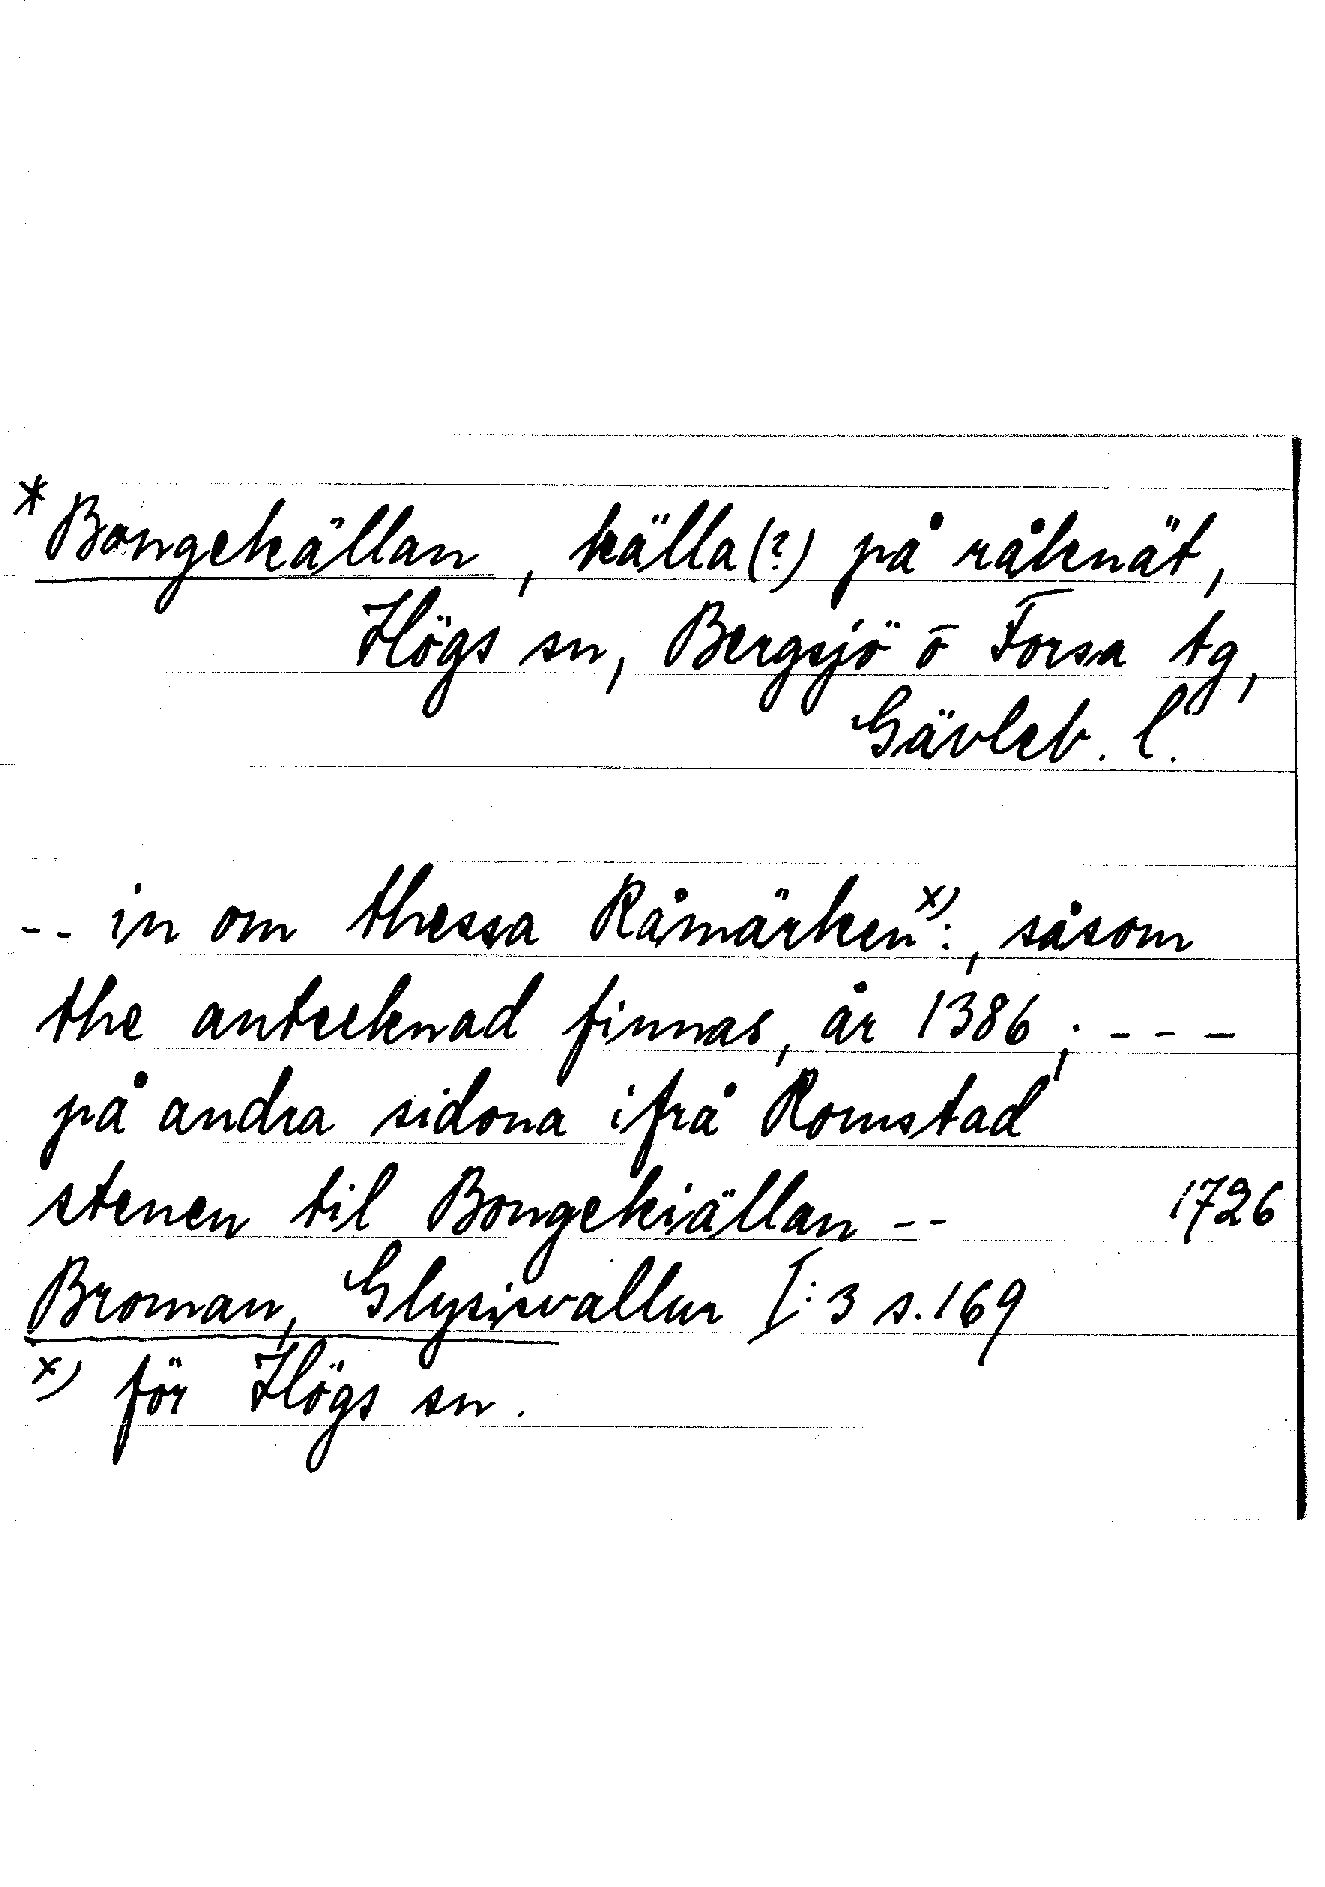 * Bongekällan, källa(?) på råknät,
Högs sn, Bergsjö o Forsa tg,
Gävleb. l.
-- in om thessa Råmärken x):, såsom
the anteeknad finnas, år 1386; ---
på andra sidona ifrå Romstad
stenen til Bongekiällan -- 1726
Broman, Glysisvallur I:3 s.169
x) för Högs sn.